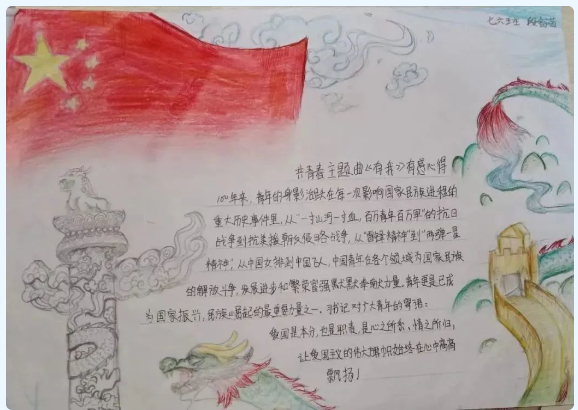 共青春主题曲《有我》有感心得
100年来，青年的身影活跃在每一次影响国家民族进程的
重大历史事件里，从"一寸山河一寸血，百万青年百万军"的抗日
战争到抗美援朝反侵略战争，从"雷锋精神"到"两弹一星
精神"；从中国女排到中国飞人，中国青年在各个领域为国家民族
的解放斗争，发展进步和繁荣富强默默奉献力量，青年更是已成
为国家振兴，民族崛起的最重要力量之一，习书记对广大青年的寄语：
爱国是本分，也是职责，是心之所系，情之所归，
让爱国主义的伟大旗帜始终在心中高高
飘扬！